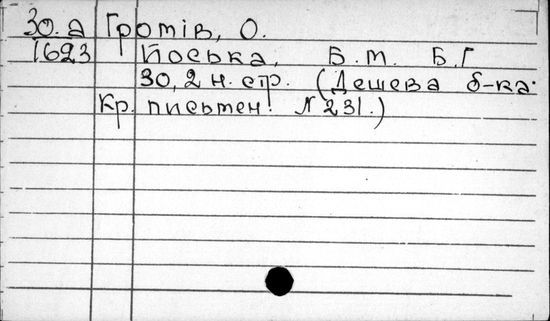 30.а Гротів, О.
1623 Йоська, Б.М. Б.Г
30, 2 н. стр. (Дешева б-ка.
Кр. письмен. № 231.)